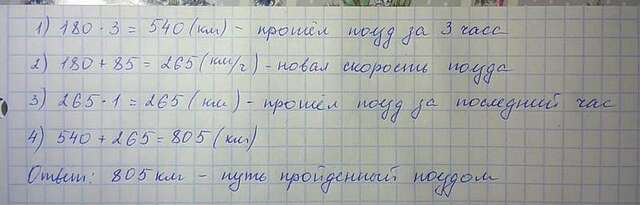 1) 180 · 3 = 540 (км) - прошёл поезд за 3 часс
2) 180 + 85 = 265 (км/г) - новая скорость поезда
3) 265 · 1 = 265 (км) - прошёл поезд за последний час
4) 540 + 265 = 805 (км)
Ответ: 805 км - путь пройденный поездом